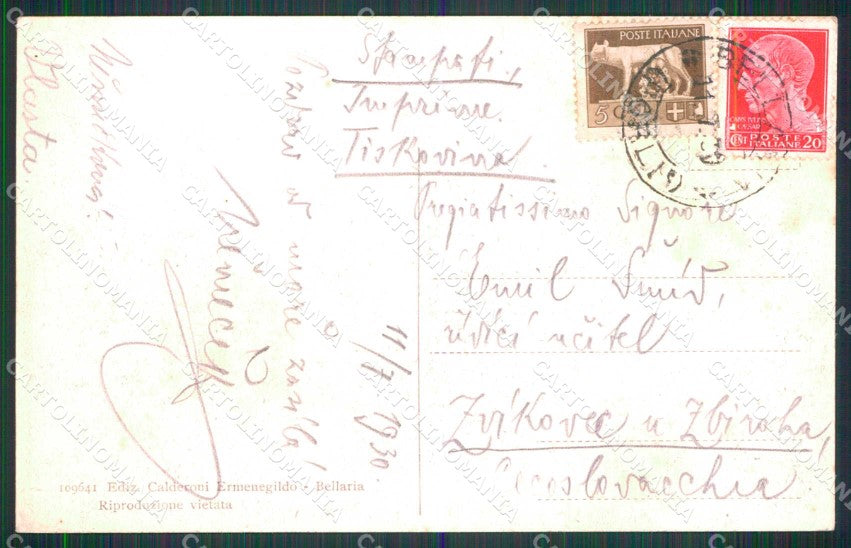 Stampati,
Imprimé.
Tiskovina.
Pregiatissimo Signore
Emil Šmíd,
řídící učitel
Zvíkovec u Zbiroha,
Cecoslovacchia.
Pozdrav
moře zasílá
Němeček
11/7 1930.
Vlasta
109641 Ediz. Calderoni Ermenegildo - Bellaria
Riproduzione vietata
POSTE ITALIANE
5
POSTE
ITALIANE
CENT 20
CARTOLINOMANIA